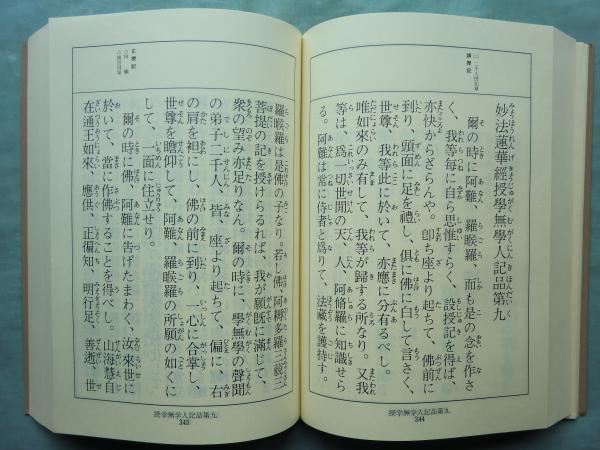 妙法蓮華經授學無學人記品第九
爾の時に阿難、羅睺羅、而も是の念を作さ
く、我等每に自ら思惟すらく、設授記を得ば、
亦快からざらんや。卽ち座より起ちて、佛前に
到り、頭面に足を禮し、俱に佛に白して言さく、
世尊、我等此に於いて、亦應に分有るべし。
唯如來のみ有して、我等が歸する所なり。又我
等は、爲一切世間の天、人、阿修羅に知識せら
る。阿難は常に侍者と爲りて、法藏を護持す。
授学無学人記品第九
344
羅睺羅は是佛の子なり。若し佛、阿耨多羅三藐三
菩提の記を授けらるれば、我が願旣に滿じて、
衆の望み亦足りなん。爾の時に、學無學の聲聞
の弟子二千人、皆、座より起ちて、偏に、右
の肩を袒にし、佛の前に到り、一心に合掌し、
世尊を瞻仰して、阿難、羅睺羅の所願の如くに
して、一面に住立せり。
爾の時に佛、阿難に告げたまわく、汝來世に
於いて、當に作佛することを得べし。山海慧自
在通王如來、應供、正徧知、明行足、善逝、世
授学無学人記品第九
345